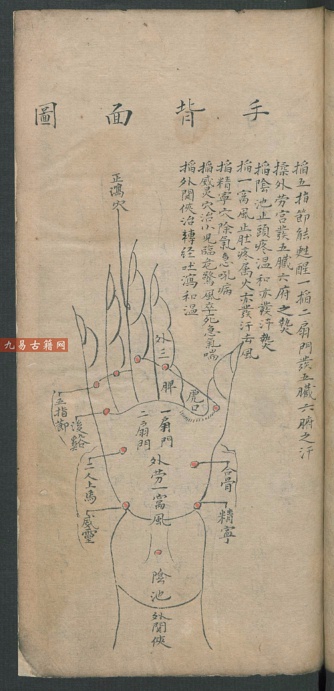 手背面圖
掐五指節能甦醒一掐二扇門發五臟六腑之汗
揉外勞宮發五臟六府之熱
掐陰池正頭疼溫和亦發汗熱
掐一窩風止肚疼属火亦發汗去風
掐精寧穴除氣急吼病
掐威灵穴治小兒臨危驚風卒死急氣喘
掐外間使治轉径吐瀉和溫
正瀉穴
外三
脾
虎口
五指節
後谿
二人上馬
威靈
一扇門
二扇門
外勞
一窩風
合骨
精寧
陰池
外間使
九易古籍网